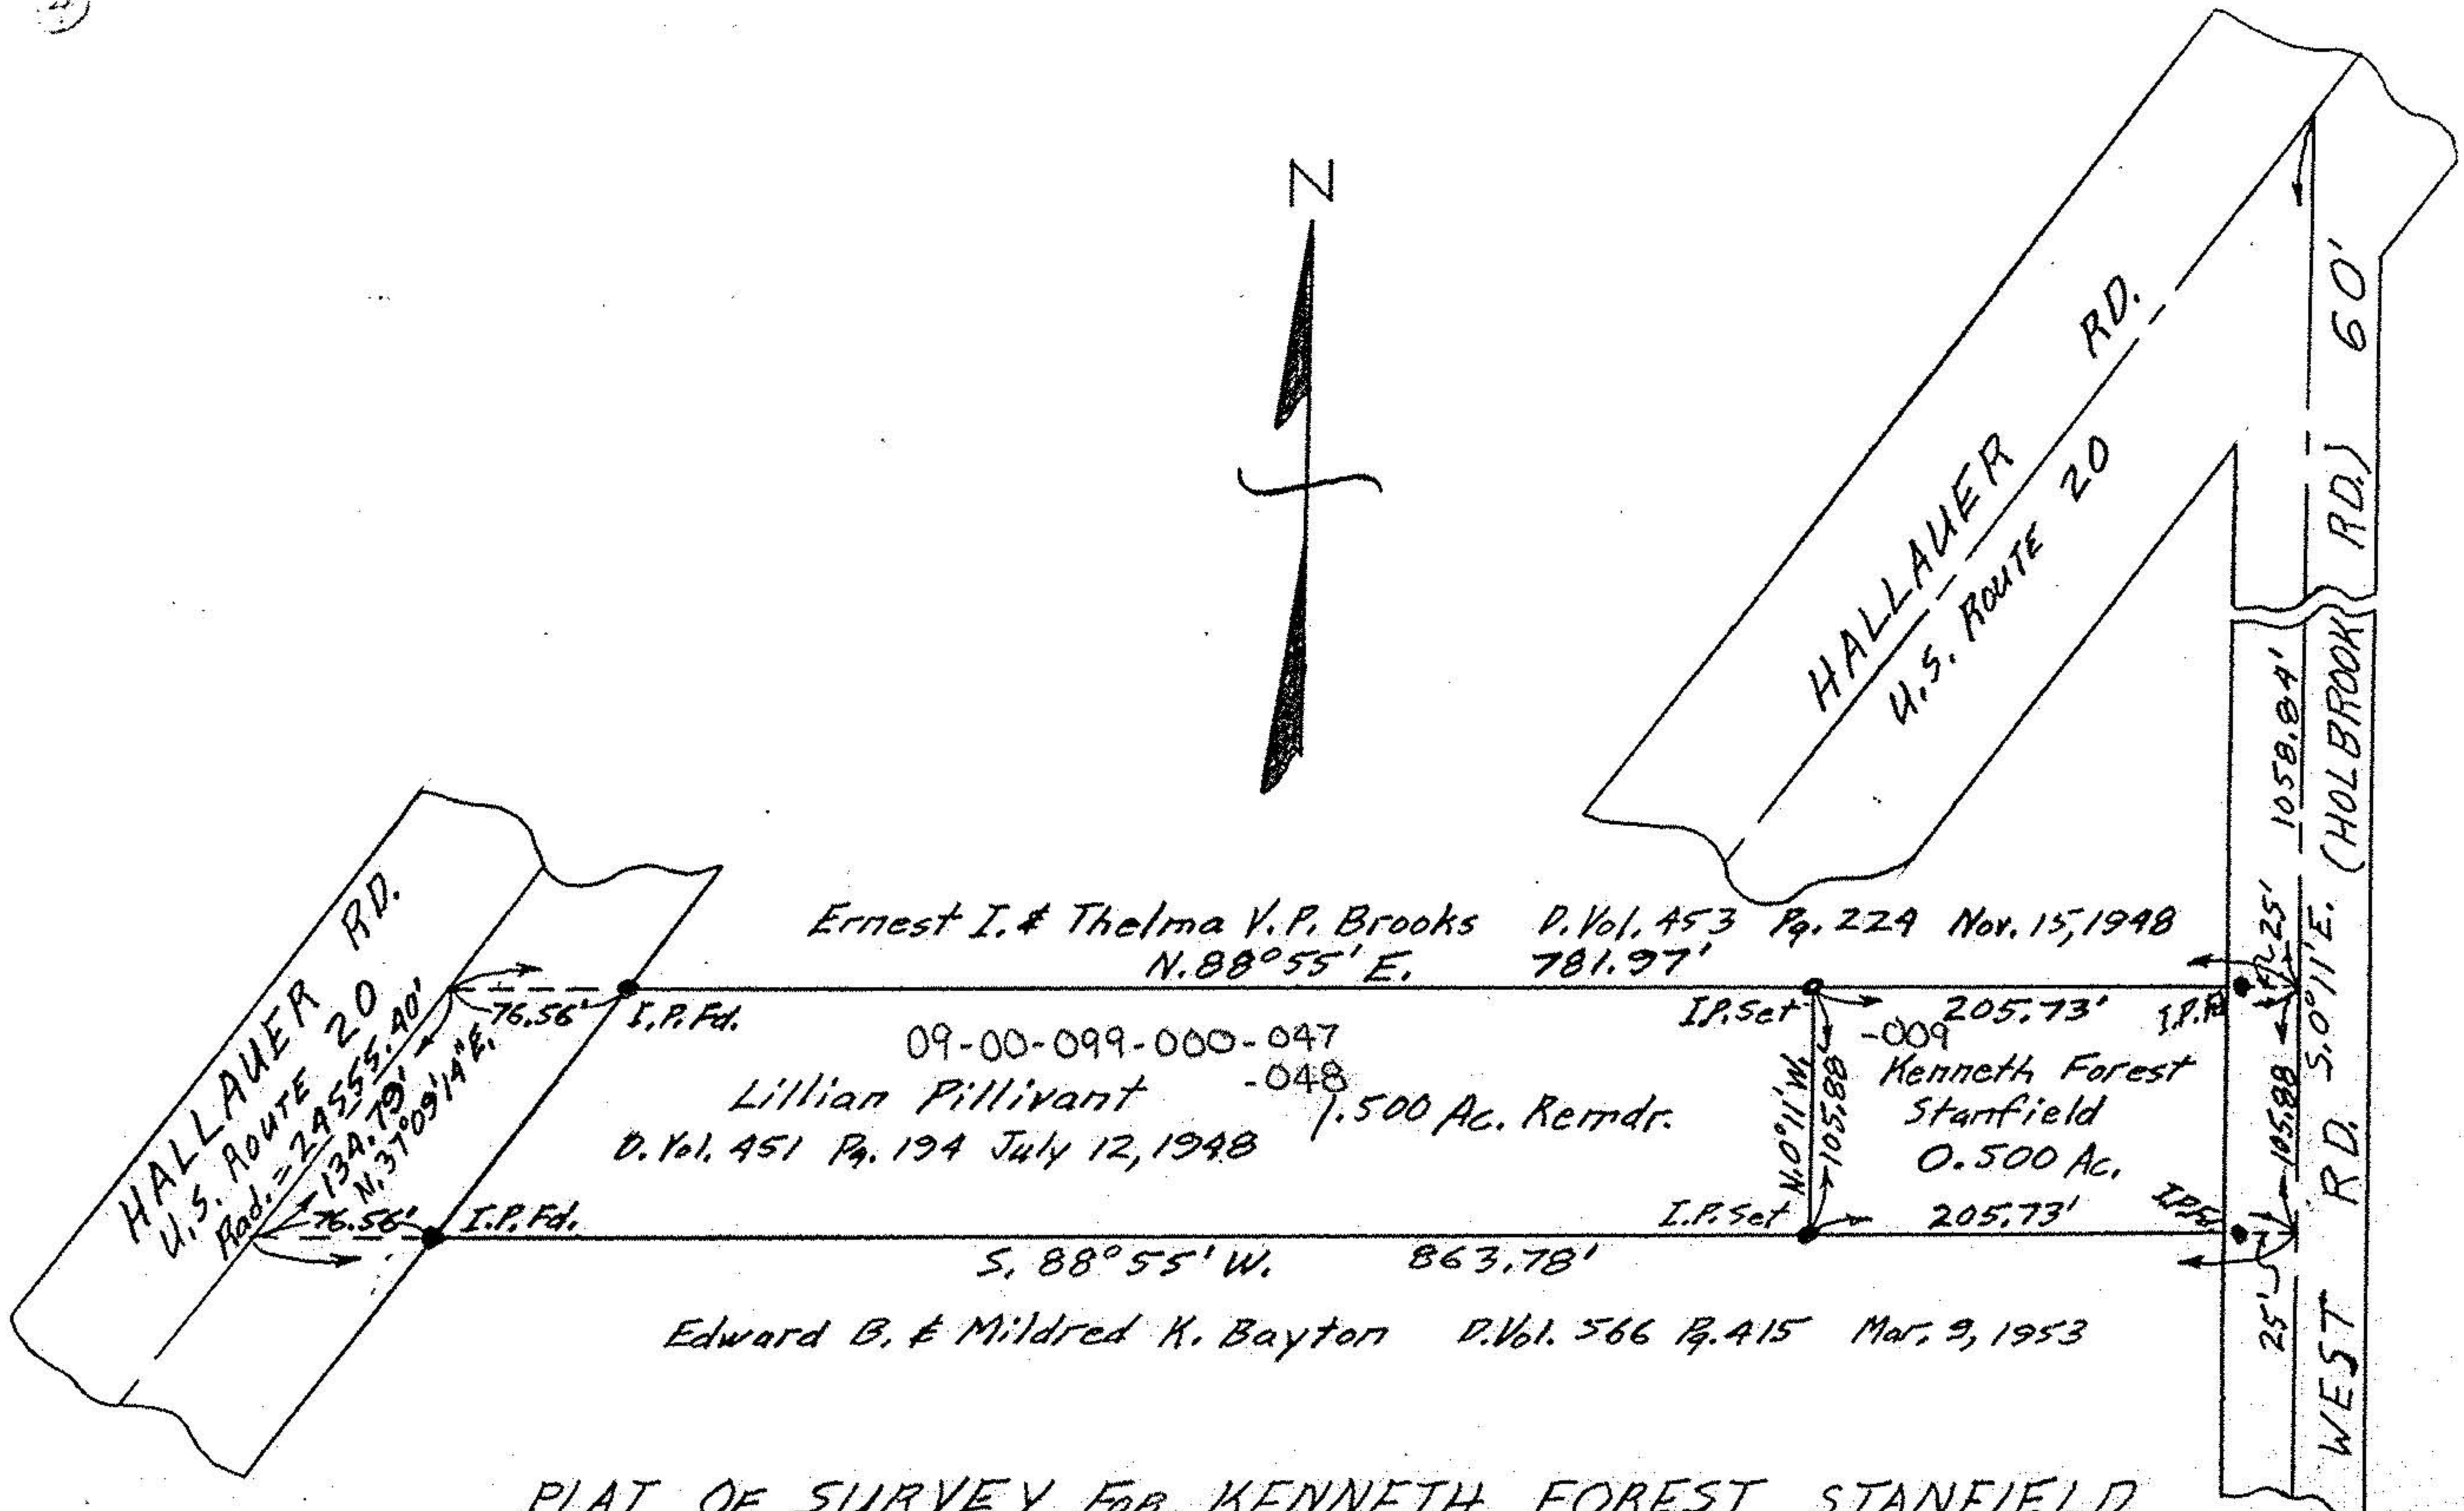 4
N
HALLAUER RD.
U.S. ROUTE 20
WEST RD. S.0°11'E. (HOLBROOK RD.) 60'
1058.84'
25'
105.88
25'
HALLAUER RD.
U.S. ROUTE 20
Rad. = 24555.40'
134.79'
N.37°09'14"E.
Ernest I. & Thelma V.P. Brooks D.Vol. 453 Pg. 224 Nov. 15, 1948
N.88°55'E. 781.97'
76.56' I.P.Fd.
I.P.Set 205.73' I.P.Fd
09-00-099-000-047
-048
-009
Lillian Pillivant
1.500 Ac. Remdr.
D.Vol. 451 Pg. 194 July 12, 1948
N.0°11'W.
105.88'
Kenneth Forest
Stanfield
0.500 Ac.
76.56' I.P.Fd.
I.P.Set 205.73' I.P.Fd
S. 88°55'W. 863.78'
Edward B. & Mildred K. Bayton D.Vol. 566 Pg. 415 Mar. 9, 1953
PLAT OF SURVEY FOR KENNETH FOREST STANFIELD